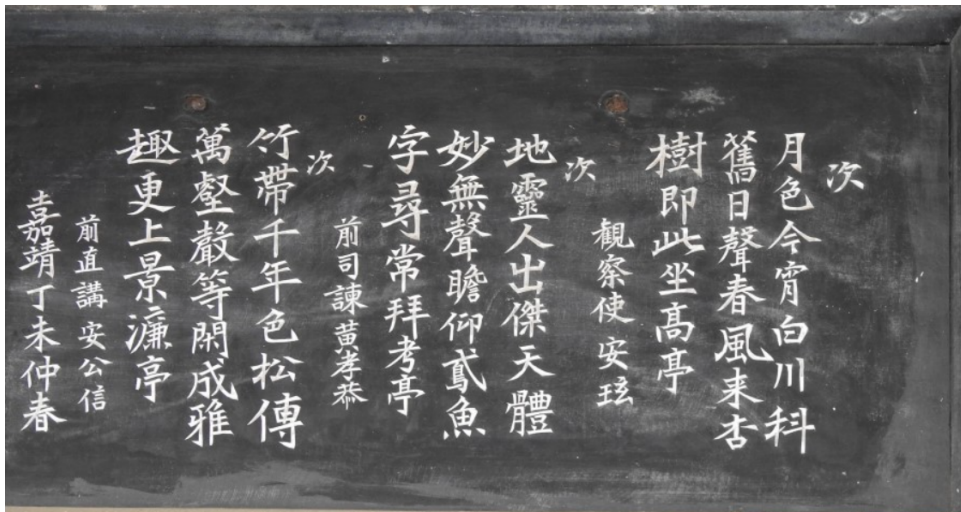 次
月色今宵白川科
舊日聲春風来杏
樹即此坐高亭
觀察使 安玹
次
地靈人出傑天體
妙無聲瞻仰鳶魚
字尋常拜考亭
前司諫黃孝恭
次
竹帶千年色松傳
萬壑聲等閑成雅
趣更上景濂亭
前直講安公信
嘉靖丁未仲春